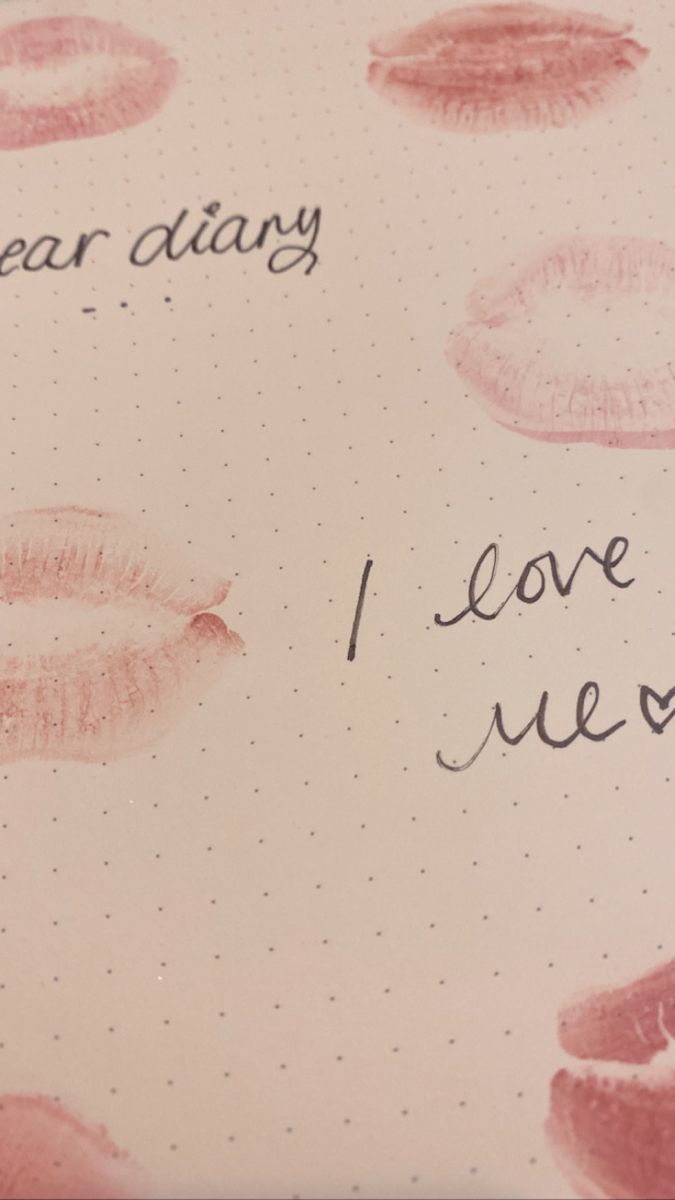 ear diary
- . . .
I love
me♡